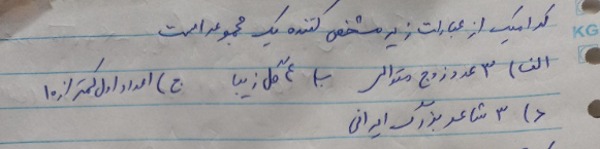 کدامیک از عبارات زیر مشخص کننده یک مجموعه است
الف) ۳ عدد زوج متوالی ب) ۴ گل زیبا ج) اعداد اول کمتر از ۱۰
د) ۳ شاعر بزرگ ایرانی
KG